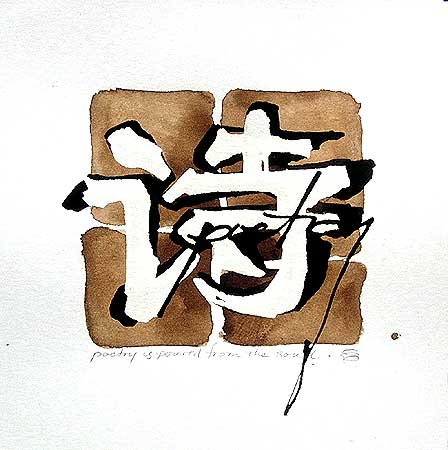 诗
poetry
poetry is poured from the soul.